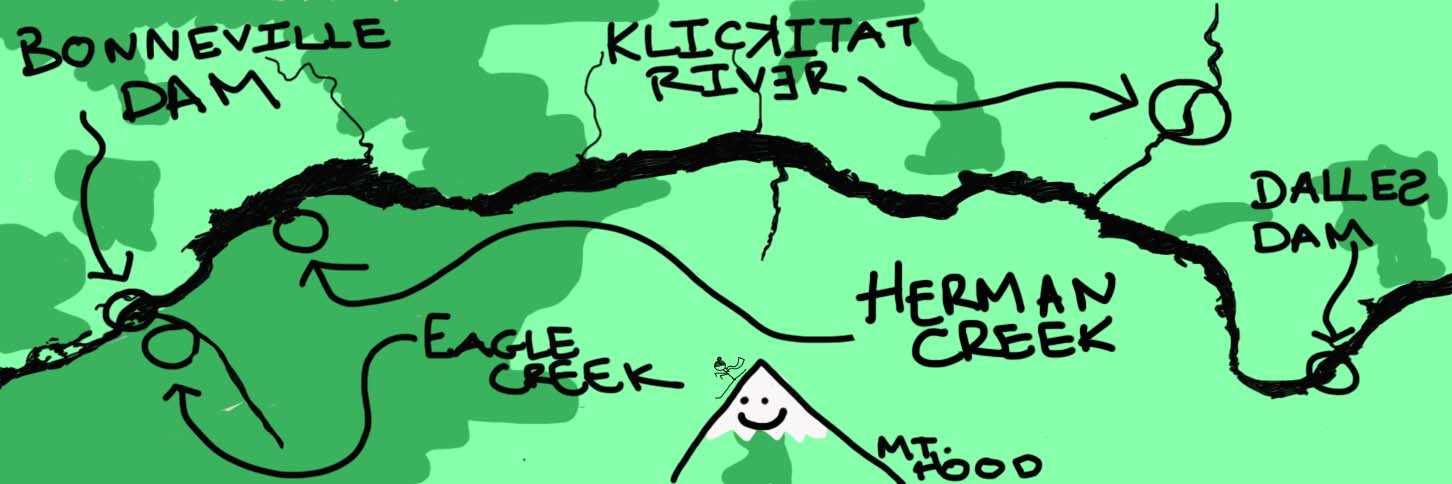 BONNEVILLE
DAM
KLICKITAT
RIVER
DALLES
DAM
HERMAN
CREEK
EAGLE
CREEK
MT.
HOOD